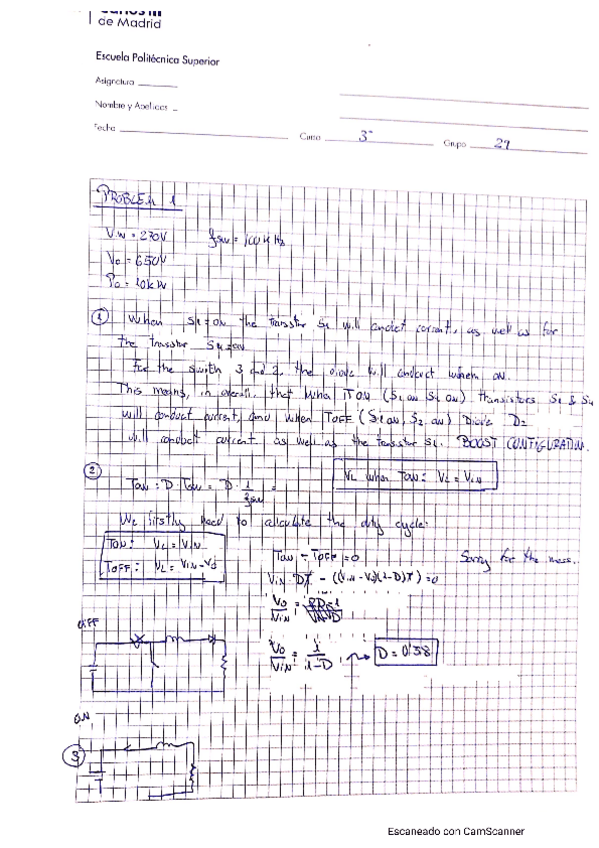 de Madrid
Escuela Politécnica Superior
Asignatura
Nombre y Apellidos
Fecha Curso 3º Grupo 29
PROBLEM 1
VIN = 270V fsw = 100 kHz
Vo = 650V
Po = 10kW
① When S1 = ON the transistor S1 will conduct current, as well as for
the transistor S4 = ON
For the switch 3 and 2, the diode will conduct when on.
This means, in overall, that when TON (S1 ON S4 ON) transistors S1 & S4
will conduct current, and when TOFF (S1 ON, S2 ON) Diode D2
will conduct current as well as the transistor S1. BOOST CONFIGURATION.
② VL when TON: VL = VIN
TON = D·TSW = D · 1/fsw =
We firstly need to calculate the duty cycle:
TON: VL = VIN
TOFF: VL = VIN - Vo
TON - TOFF = 0
Sorry for the mess.
VIN · DT - ((VIN - Vo)(1-D)T) = 0
Vo/VIN =
Vo/VIN = 1/1-D → D = 0'58
OFF
ON
③
Escaneado con CamScanner